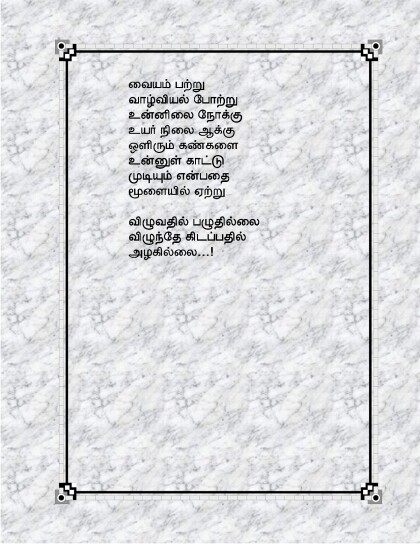 வையம் பற்று
வாழ்வியல் போற்று
உன்னிலை நோக்கு
உயர் நிலை ஆக்கு
ஒளிரும் கண்களை
உன்னுள் காட்டு
முடியும் என்பதை
மூளையில் ஏற்று
விழுவதில் பழுதில்லை
விழுந்தே கிடப்பதில்
அழகில்லை...!